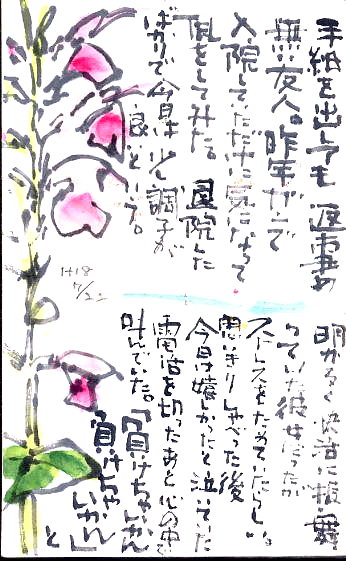 手紙を出しても返事の
無い友人。昨年ガンで
入院していただけに気になって
TELをしてみた。退院した
ばかりで今日は少し調子が
良いという。
H18
7/22
明かるく快活に振舞
っていた彼女だったが
ストレスをためていたらしい。
思いきりしゃべった後
今日は嬉しかったと泣いていた
電話を切ったあと心の中で
叫んでいた。「負けちゃいかん
負けちゃいかん」と